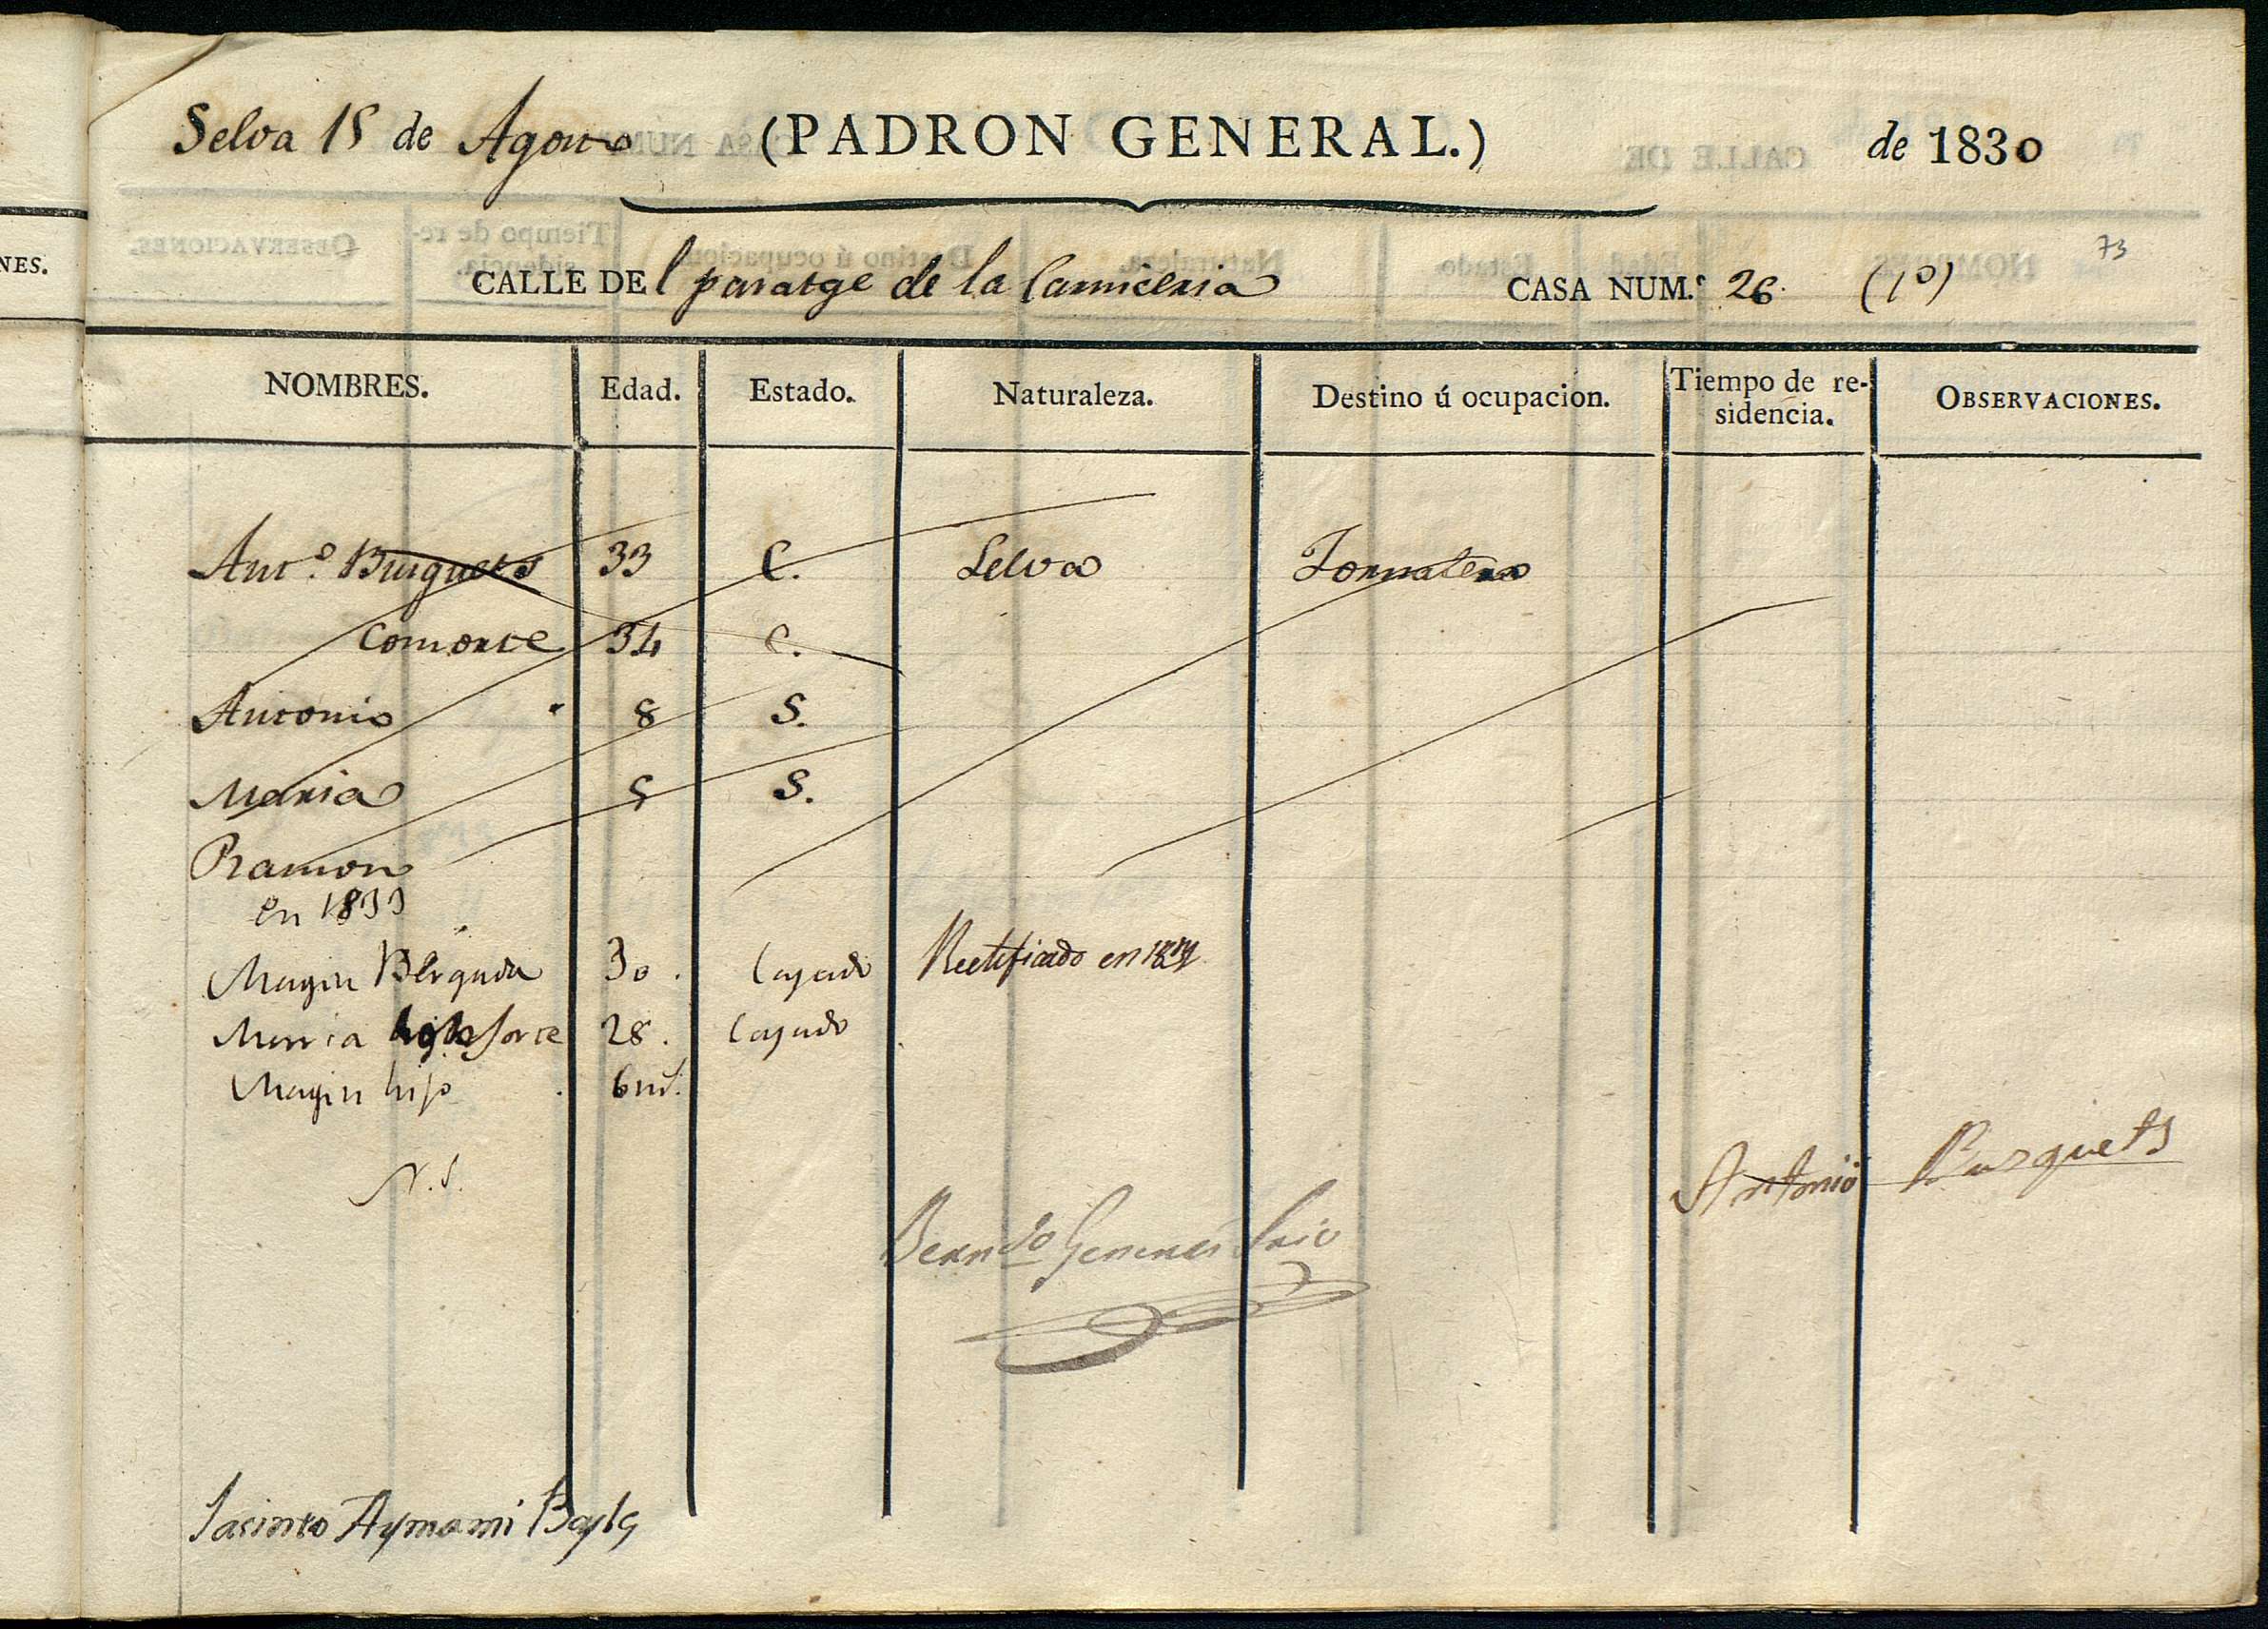 Selva 15 de Agosto (PADRON GENERAL.) de 1830
73
CALLE DEl paratge de la Carniceria CASA NUM.º 26. (1º)
NES.
NOMBRES. Edad. Estado. Naturaleza. Destino ú ocupacion. Tiempo de re-
sidencia. OBSERVACIONES.
Antº. Busquets 33 C. Selva Jornalero
Consorte 34 C.
Antonio 8 S.
Maria 5 S.
Ramon
en 1833
Magin 30. Casado Rectificado en
Maria 28. Casado
Magin hijo 6 m.
N.S.
Antonio Busquets
Berndo Srio
Jacinto Aymami Bayle